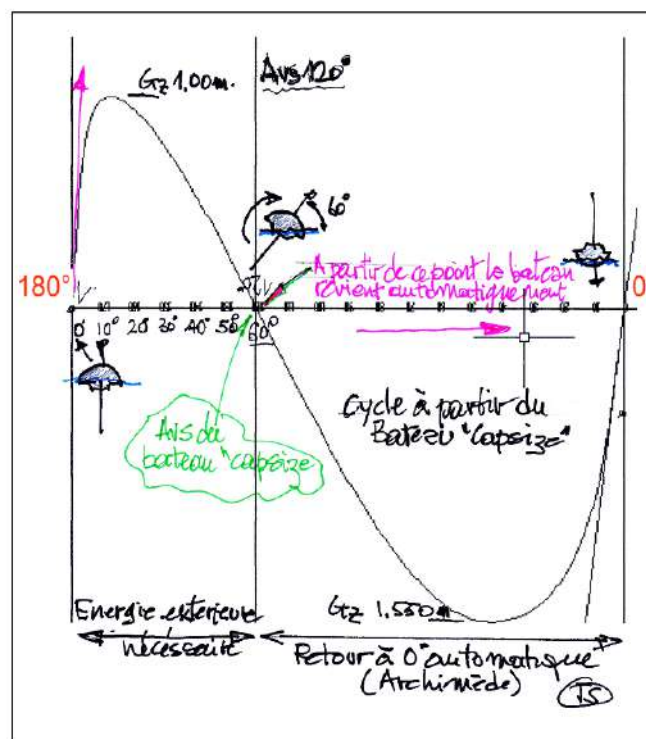 Gz 1.00m.
AVS 120°
60°
A partir de ce point le bateau
revient automatiquement
180°
0
0° 10° 20° 30° 40° 50° 60°
Cycle à partir du
Bateau "Capsize"
AVS du
bateau "capsize
Energie exterieure
nécessaire
Gz 1.550m
Retour à 0° automatique
(Archimède)
TS